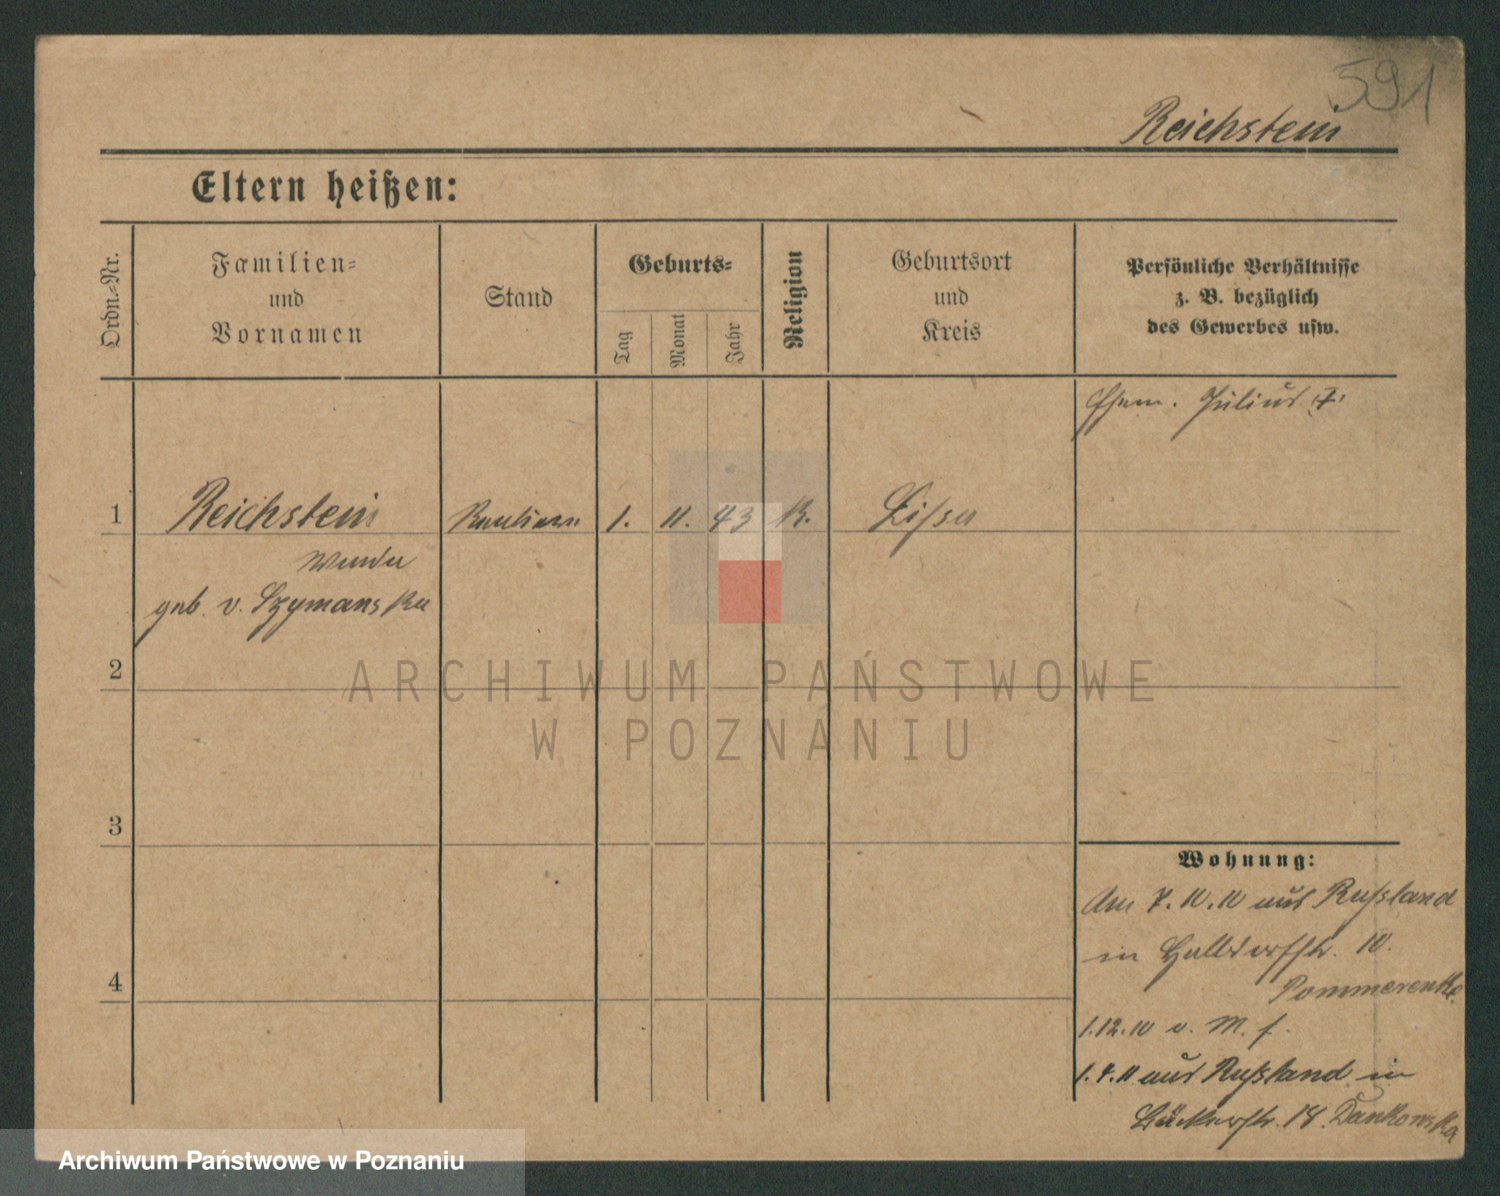 591
Reichstein
Eltern heißen:
Ordn.-Nr.
Familien-
und
Vornamen
Stand
Geburts-
Tag
Monat
Jahr
Religion
Geburtsort
und
Kreis
Persönliche Verhältnisse
z. B. bezüglich
des Gewerbes usw.
Ehem. Julius †.
1
Reichstein
Rentiere
1. 11. 43
K.
Lissa
Wanda
geb. v. Szymanska
2
ARCHIWUM PAŃSTWOWE
W POZNANIU
3
Wohnung:
Am 7. 10. 10 aus Russland
in Halldorfstr. 10.
Pommerenke
4
1.12.10 v. M. f.
1.4.11 aus Russland in
Bäckerstr. 18. Dankowska
Archiwum Państwowe w Poznaniu